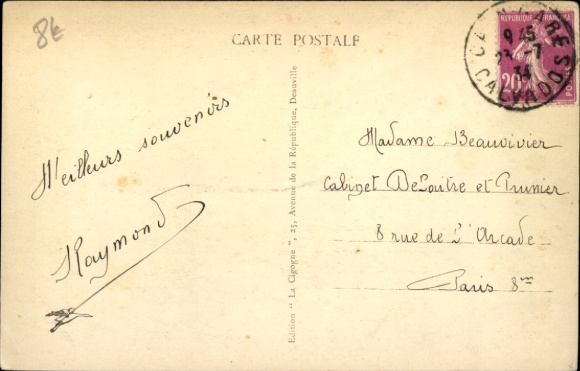 8€
CARTE POSTALE
RÉPUBLIQUE FRANÇAISE
20c
CAEN GARE
9 45
23 -7
34
CALVADOS
Meilleurs souvenirs
Raymond
Edition "La Cigogne", 25, Avenue de la République, Deauville
Madame Beauvivier
Cabinet Delaitre et Prunier
8 rue de L'Arcade
Paris 8me